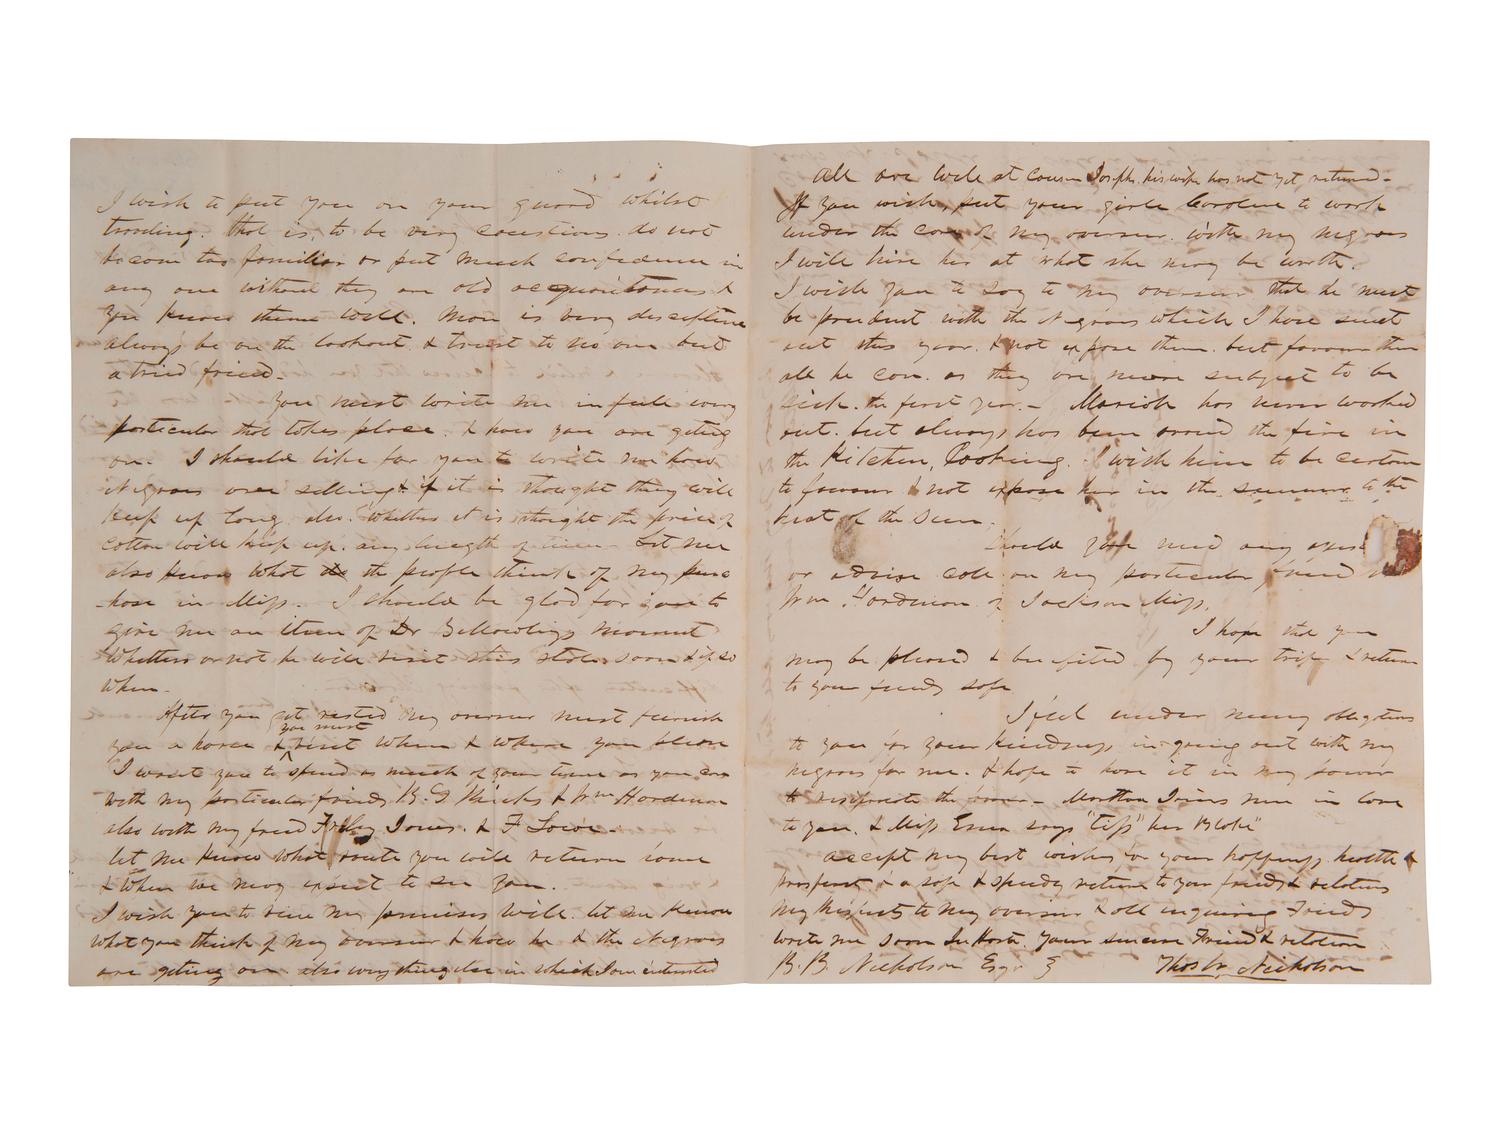 I wish to put you on your guard whilst
trading. that is, to be very coustious. do not
becom too familiar or put much confidence in
any one without they are old acquaintances &
you know them well. Man is very deceptive
always be on the lookout & trust to no one but
a tried friend.
You must write me in full every
particular that takes place. & how you are geting
on. I should like for you to write me how
Negroes are selling & if it is thought they will
keep up long. also. whether it is thought the price of
cotton will keep up. any length of time. Let me
also know what the people think of my purc
hase in Miss. I should be glad for you to
give me an item of Dr Bellowlings movement
Whether or not he will visit this state soon & if so
when.
After you get rested my overseer must furnish
you a horse & you must visit when & where you please
I want you to spend as much of your time as you can
with my particular friends B. G. Hicks & Wm Hardeman
also with my friend Friley Jones. & F Lowe.
let me know what route you will return home
& when we may expect to see you.
I wish you to view my premises well. let me know
what you think of my overseer & how he & the Negroes
are geting on. also every thing else in which I am interested
All are well at cousin Joseph. his wife has not yet returned.
If you wish, put your girl Caroline to work
under the care of my overseer. with my negroes
I will hire her at what she may be worth.
I wish you to say to my overseer that he must
be prudent with the Negroes which I have sent
out this year. & not expose them. but favour them
all he can. as they are more subject to be
sick. the first year. Mariah has never worked
out. but always has been around the fire in
the Kitchen, Cooking. I wish him to be certain
to favour & not expose her in the summer to the
heat of the Sun.
Should you need any
or advise call on my particular friend
Wm Hardeman of Jackson Miss.
I hope that you
may be pleased & benefited by your trip & return
to your friends safe
I feel under many obligations
to you for your kindness in going out with my
negroes for me. & hope to have it in my power
to reciprocate the favor. Martha Joins me in love
to you. & Miss Emma says "tiss" her
accept my best wishes for your happiness health &
prosperity & a safe & speedy return to your friends & relations
my respects to my overseer & all inquiring friends
write me soon In Haste. Your sincere Friend & relation
B. B. Nicholson Esqr Thos W. Nicholson